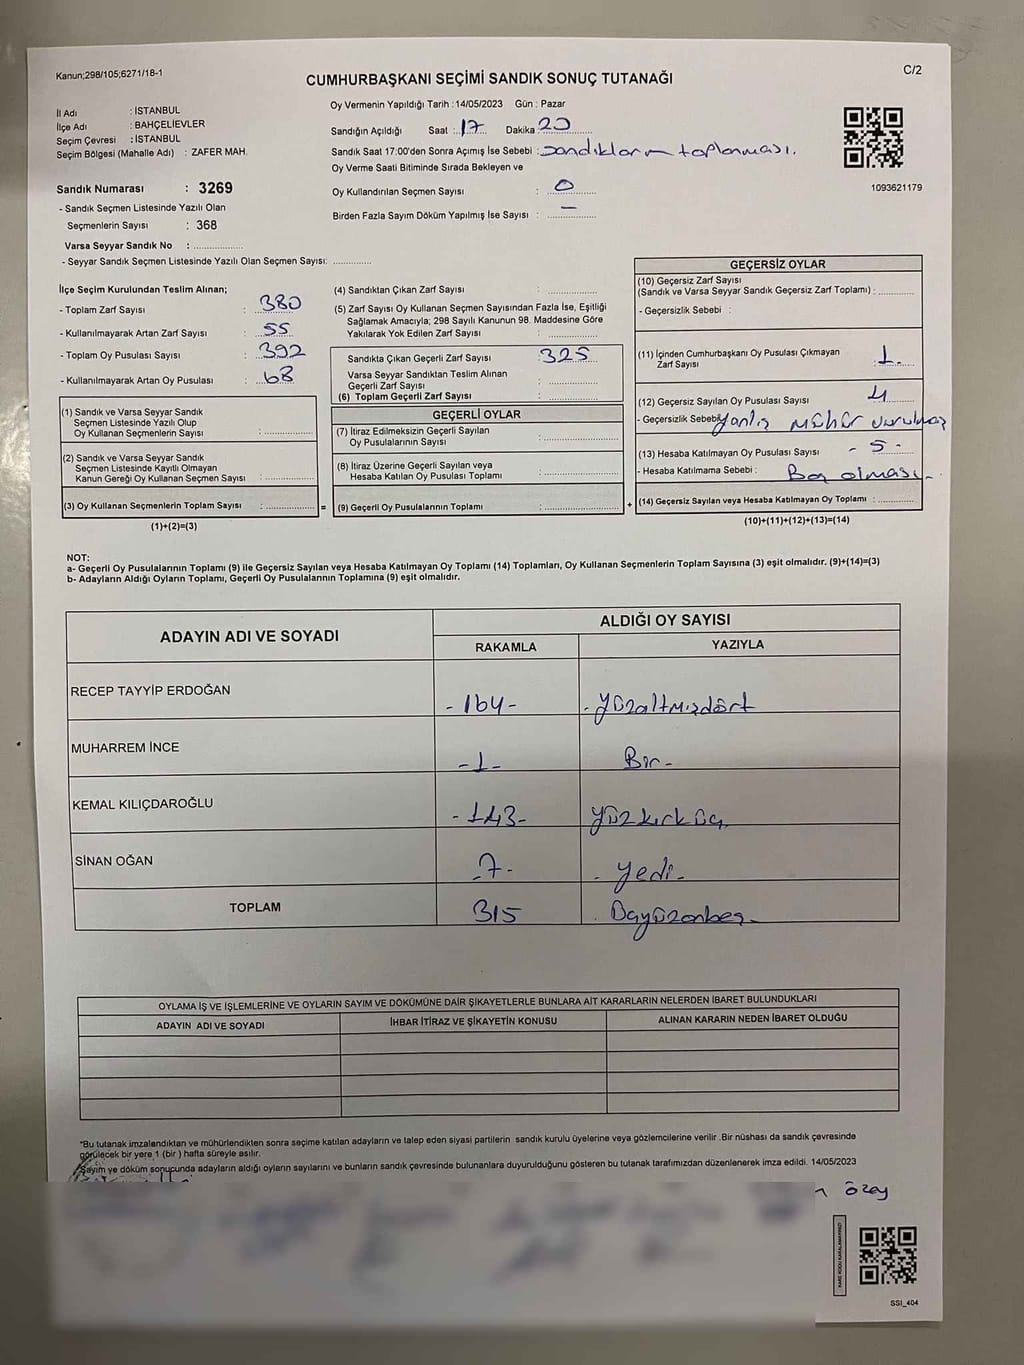 Kanun;298/105;6271/18-1
C/2
CUMHURBAŞKANI SEÇİMİ SANDIK SONUÇ TUTANAĞI
İl Adı : İSTANBUL
İlçe Adı : BAHÇELİEVLER
Seçim Çevresi : İSTANBUL
Seçim Bölgesi (Mahalle Adı) : ZAFER MAH.
Oy Vermenin Yapıldığı Tarih :14/05/2023 Gün : Pazar
Sandığın Açıldığı Saat : 17 Dakika : 20
Sandık Saat 17:00'den Sonra Açımış İse Sebebi : Sandıkların toplanması.
Oy Verme Saati Bitiminde Sırada Bekleyen ve
Oy Kullandırılan Seçmen Sayısı : 0
Birden Fazla Sayım Döküm Yapılmış İse Sayısı : –
1093621179
Sandık Numarası : 3269
- Sandık Seçmen Listesinde Yazılı Olan
Seçmenlerin Sayısı : 368
Varsa Seyyar Sandık No : ..............
- Seyyar Sandık Seçmen Listesinde Yazılı Olan Seçmen Sayısı: ...........
İlçe Seçim Kurulundan Teslim Alınan;
- Toplam Zarf Sayısı : 380
- Kullanılmayarak Artan Zarf Sayısı : 55
- Toplam Oy Pusulası Sayısı : 392
- Kullanılmayarak Artan Oy Pusulası : 68
(1) Sandık ve Varsa Seyyar Sandık
Seçmen Listesinde Yazılı Olup
Oy Kullanan Seçmenlerin Sayısı : ..............
(2) Sandık ve Varsa Seyyar Sandık
Seçmen Listesinde Kayıtlı Olmayan
Kanun Gereği Oy Kullanan Seçmen Sayısı : ..............
(3) Oy Kullanan Seçmenlerin Toplam Sayısı : .............. =
(1)+(2)=(3)
(4) Sandıktan Çıkan Zarf Sayısı : ..............
(5) Zarf Sayısı Oy Kullanan Seçmen Sayısından Fazla İse, Eşitliği
Sağlamak Amacıyla; 298 Sayılı Kanunun 98. Maddesine Göre
Yakılarak Yok Edilen Zarf Sayısı : ..............
Sandıkta Çıkan Geçerli Zarf Sayısı : 325
Varsa Seyyar Sandıktan Teslim Alınan
Geçerli Zarf Sayısı : ..............
(6) Toplam Geçerli Zarf Sayısı : ..............
GEÇERLİ OYLAR
(7) İtiraz Edilmeksizin Geçerli Sayılan
Oy Pusulalarının Sayısı : ..............
(8) İtiraz Üzerine Geçerli Sayılan veya
Hesaba Katılan Oy Pusulası Toplamı : ..............
(9) Geçerli Oy Pusulalarının Toplamı : .............. +
GEÇERSİZ OYLAR
(10) Geçersiz Zarf Sayısı
(Sandık ve Varsa Seyyar Sandık Geçersiz Zarf Toplamı) : ...........
- Geçersizlik Sebebi :
(11) İçinden Cumhurbaşkanı Oy Pusulası Çıkmayan
Zarf Sayısı : 1.
(12) Geçersiz Sayılan Oy Pusulası Sayısı 4
- Geçersizlik Sebebi Yanlış mühür
(13) Hesaba Katılmayan Oy Pusulası Sayısı - 5 -
- Hesaba Katılmama Sebebi : Boş olması -
(14) Geçersiz Sayılan veya Hesaba Katılmayan Oy Toplamı : ...........
(10)+(11)+(12)+(13)=(14)
NOT:
a- Geçerli Oy Pusulalarının Toplamı (9) ile Geçersiz Sayılan veya Hesaba Katılmayan Oy Toplamı (14) Toplamları, Oy Kullanan Seçmenlerin Toplam Sayısına (3) eşit olmalıdır. (9)+(14)=(3)
b- Adayların Aldığı Oyların Toplamı, Geçerli Oy Pusulalarının Toplamına (9) eşit olmalıdır.
ADAYIN ADI VE SOYADI
ALDIĞI OY SAYISI
RAKAMLA
YAZIYLA
RECEP TAYYİP ERDOĞAN - 164 - - Yüzaltmışdört
MUHARREM İNCE - 1 - Bir -
KEMAL KILIÇDAROĞLU - 143 - Yüzkırküç
SİNAN OĞAN - 7 - - Yedi -
TOPLAM 315 . Üçyüzonbeş -
OYLAMA İŞ VE İŞLEMLERİNE VE OYLARIN SAYIM VE DÖKÜMÜNE DAİR ŞİKAYETLERLE BUNLARA AİT KARARLARIN NELERDEN İBARET BULUNDUKLARI
ADAYIN ADI VE SOYADI
İHBAR İTİRAZ VE ŞİKAYETİN KONUSU
ALINAN KARARIN NEDEN İBARET OLDUĞU
*Bu tutanak imzalandıktan ve mühürlendikten sonra seçime katılan adayların ve talep eden siyasi partilerin sandık kurulu üyelerine veya gözlemcilerine verilir .Bir nüshası da sandık çevresinde
görülecek bir yere 1 (bir ) hafta süreyle asılır.
Sayım ve döküm sonucunda adayların aldığı oyların sayılarını ve bunların sandık çevresinde bulunanlara duyurulduğunu gösteren bu tutanak tarafımızdan düzenlenerek imza edildi. 14/05/2023
özay
KARE KODU KARALAMAYINIZ!
SSI_404